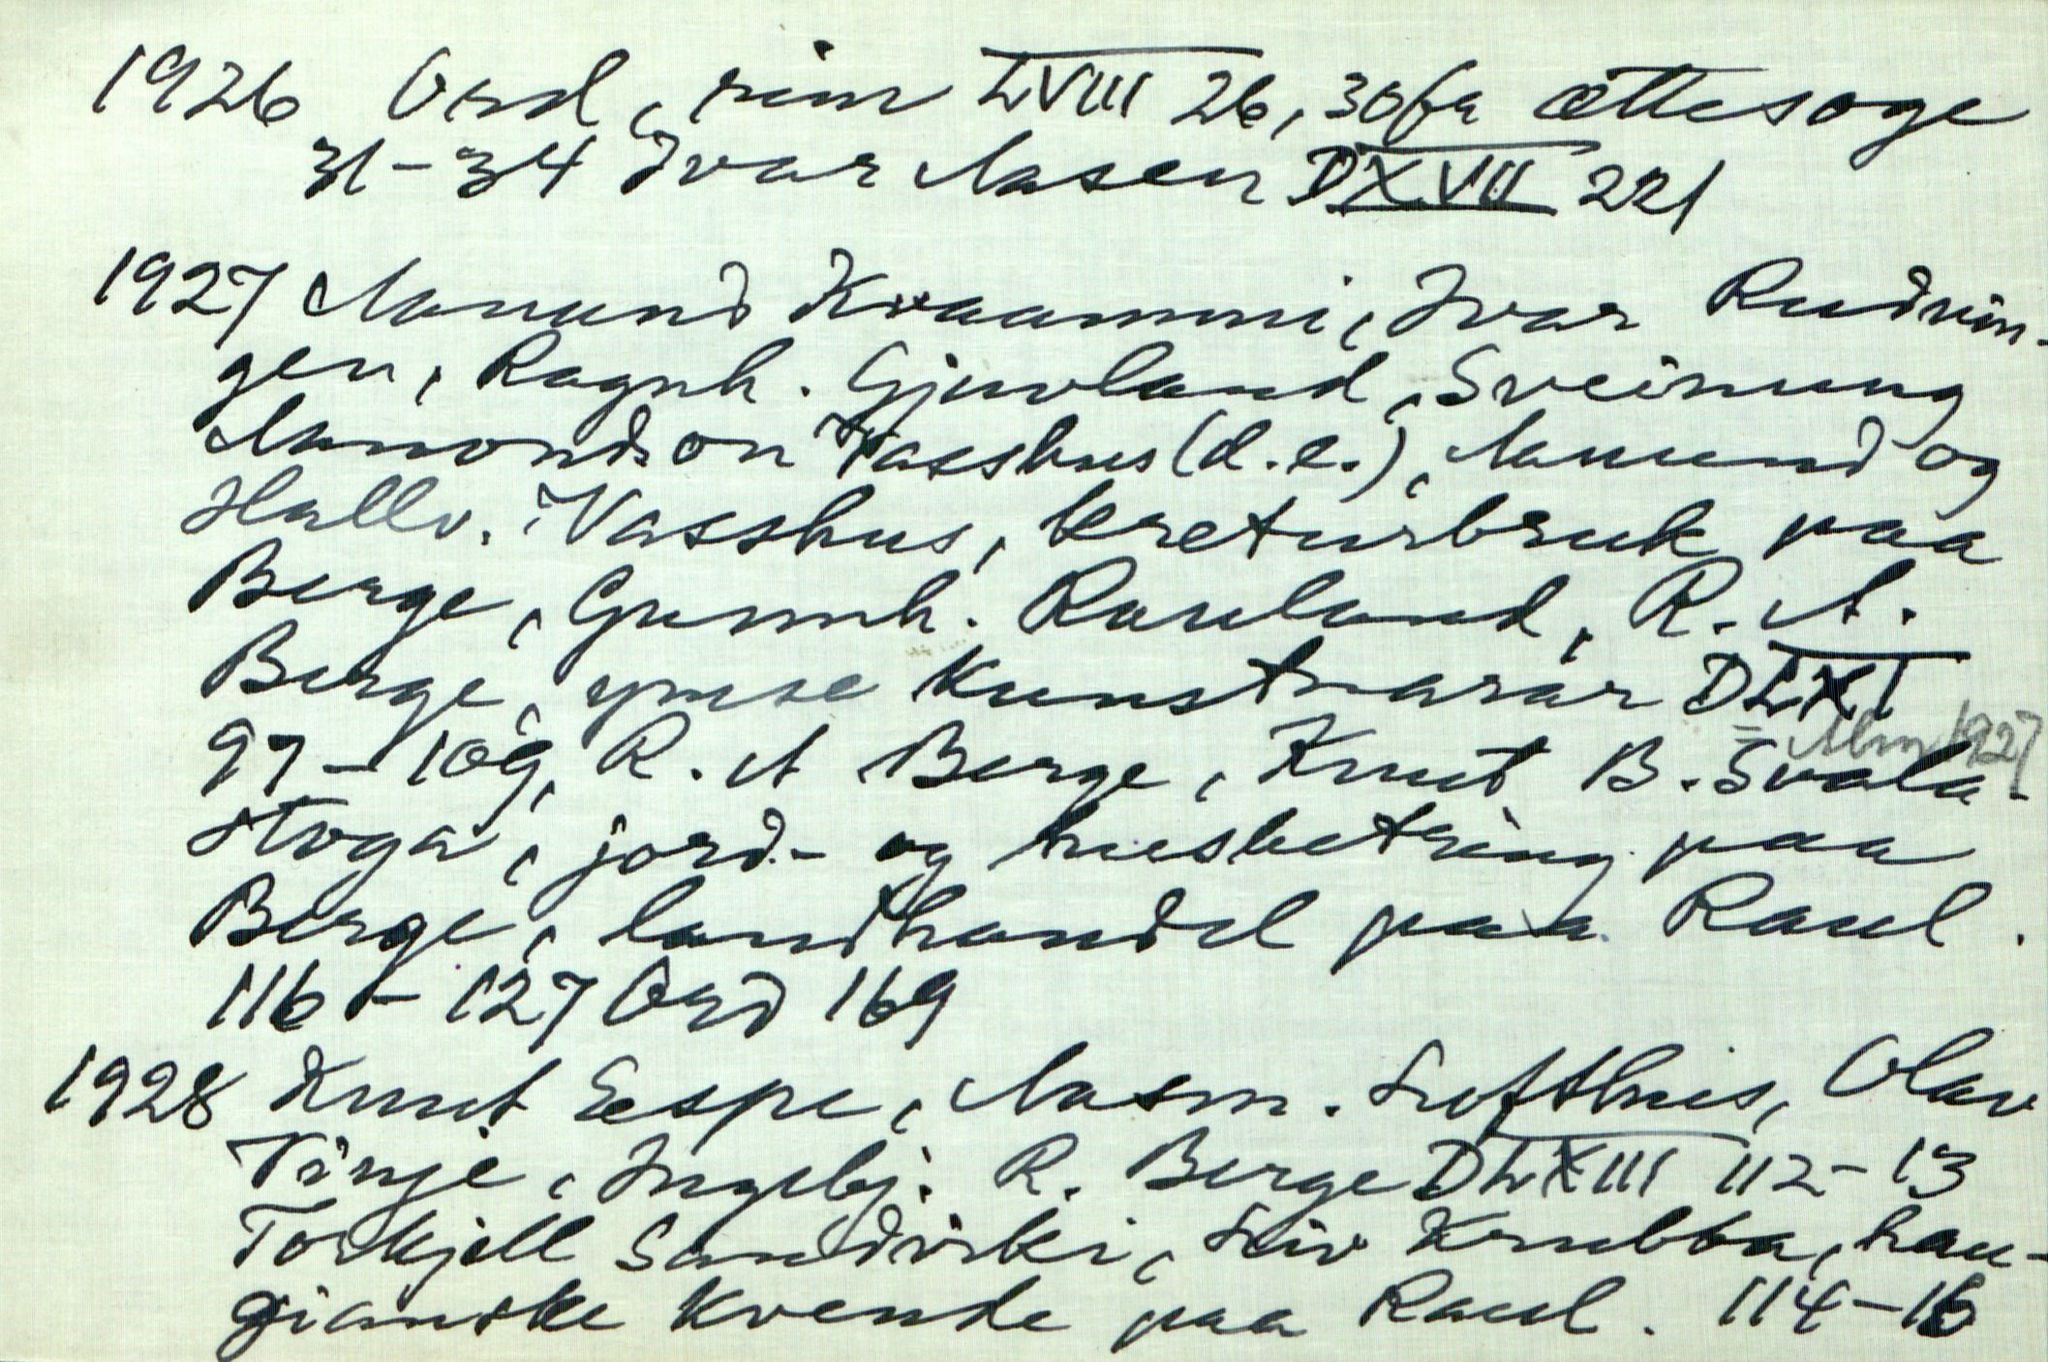 1926 Ord, rim LVIII 26, 30 fr ættesoge
31-34 Ivar Aasen DXVII 221
1927 Aanund Kvaammi, Ivar Rudnin-
gen, Ragnh. Gjuvland, Sveinung
Aanondson Vasshus (d.e.), Aanund og
Hallv. Vasshus, kreturbruk paa
Berge, Gunnh. Rauland, R. A.
Berge, ymse kunstnarar DLXI
97-109, R. A Berge, Knut B. Svala-
1927
stoga, jord- og husbetring paa
Berge, landhandel paa Raul.
116-127 Ord 169
1928 Knut Espe, Aasm. Lufthus, Olav
Tinje, Ingebj. R. Berge DLXIII 112-13
Torkjell Sandvirki, Liv Krubba, hau-
gianske kvende paa Raul. 114-16